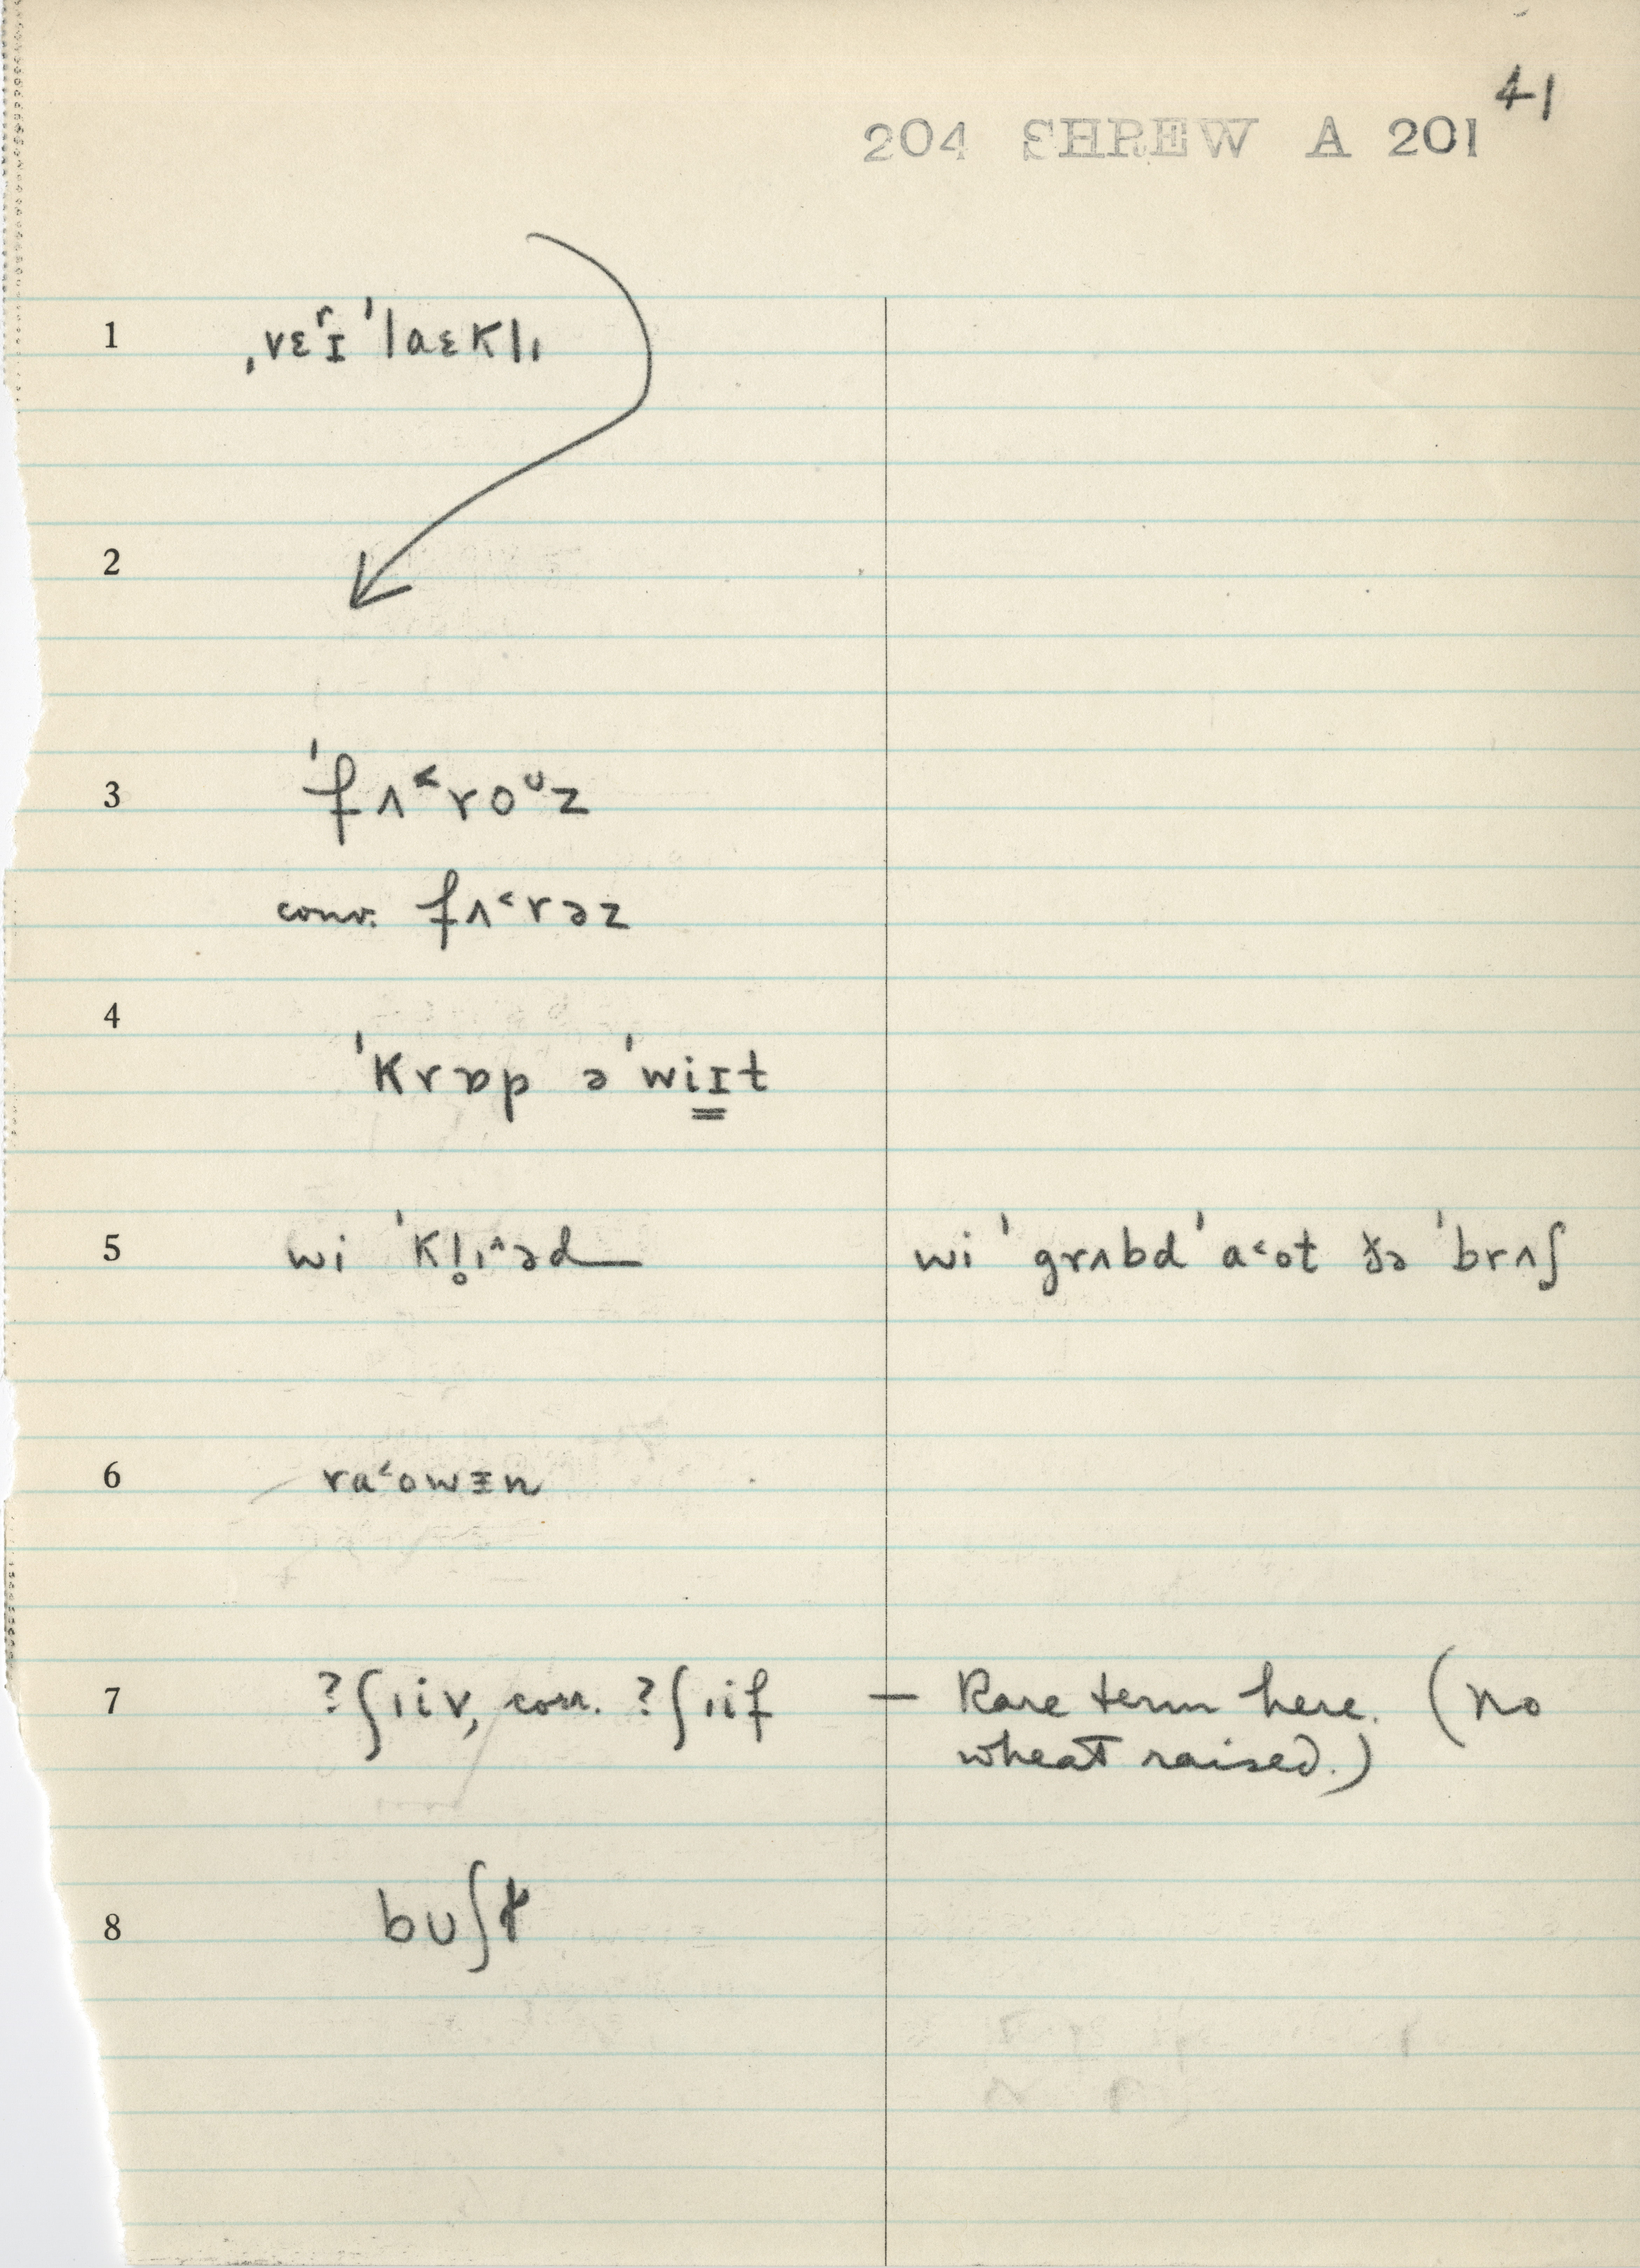 41
204 SHREW A 201
1 ˌvɛʳɪ ˈlaɛklɩ
2
3 ˈfʌ˂roᶷz
conv. fʌ˂rəz
4 ˈkrɒp ə ˈwiɪt
5 wi ˈkl̥ɩ˄əd wi ˈgrʌbd ˈa˂ot ðə ˈbrʌʃ
6 ra˂owᴈn
7 ?ʃɩiv, corr. ?ʃɩif — Rare term here. (no
wheat raised.)
8 buʃɫ